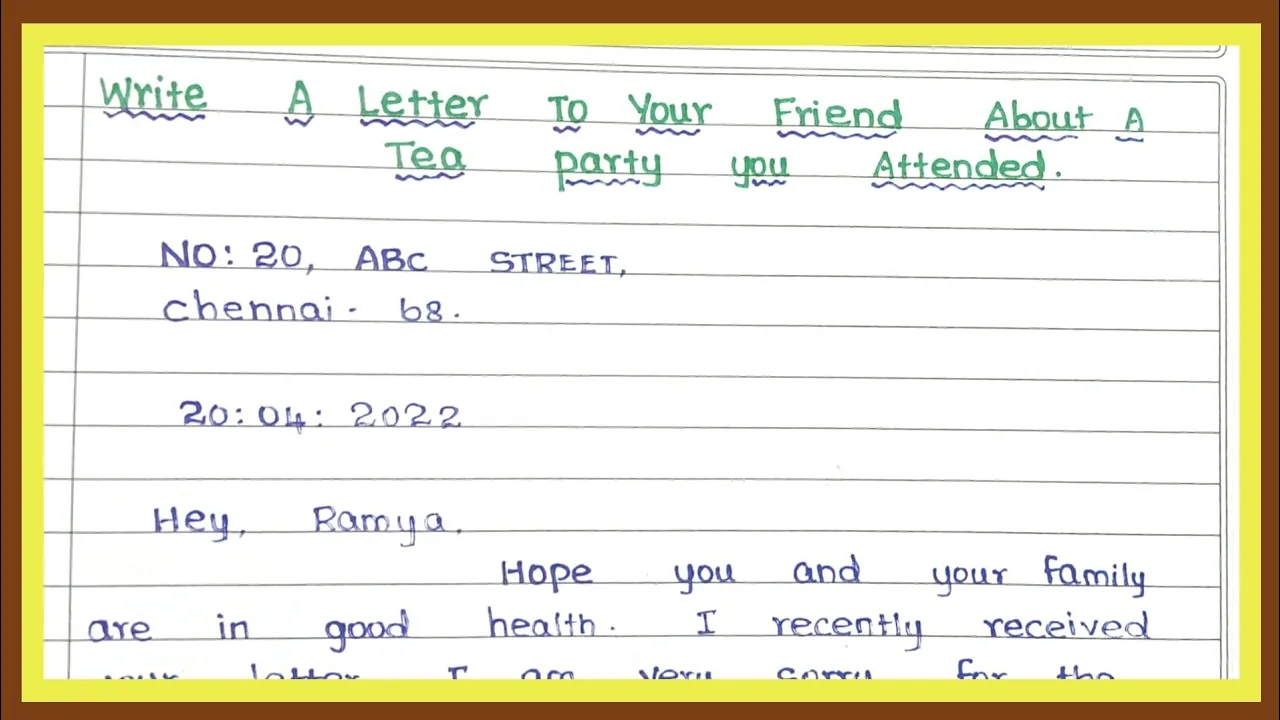 Write A Letter To Your Friend About A
Tea party you Attended.
NO: 20, ABC STREET,
Chennai - 68.
20:04: 2022
Hey, Ramya.
Hope you and your family
are in good health. I recently received
your letter. I am very sorry for the